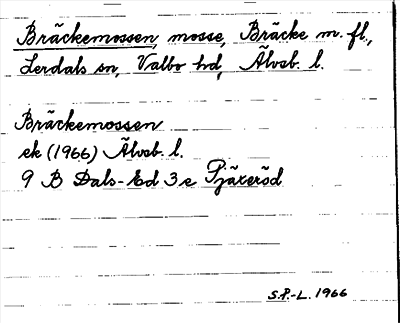 Bräckemossen, mosse, Bräcke m. fl.,
Lerdals sn, Valbo hd, Älvsb. l.
Bräckemossen
ek (1966) Älvsb. l.
9 B Dals-Ed 3 e Tjäxeröd
S.P.-L. 1966